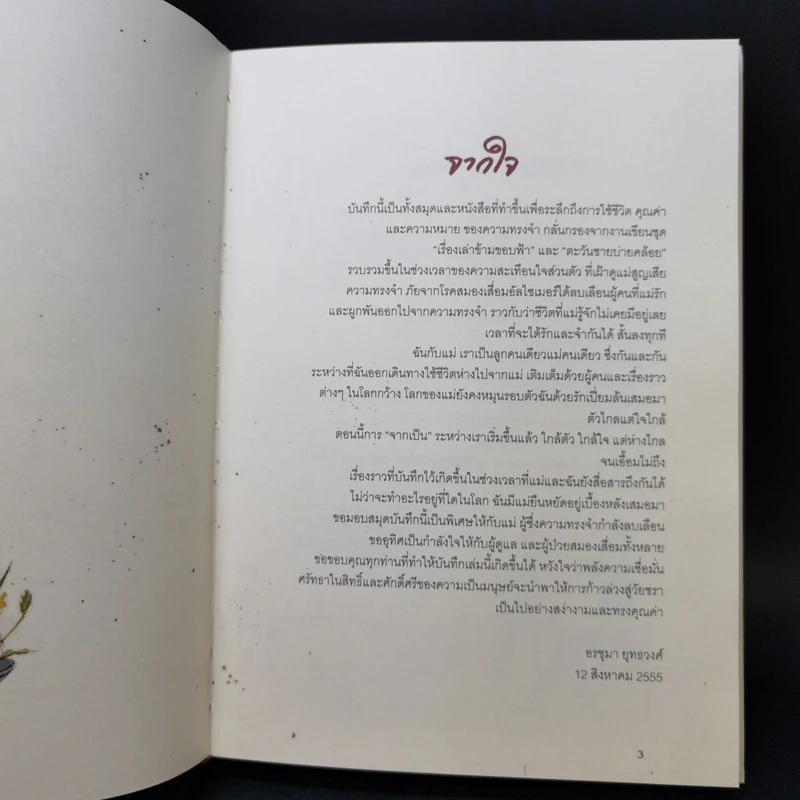 จากใจ
บันทึกนี้เป็นทั้งสมุดและหนังสือที่ทำขึ้นเพื่อระลึกถึงการใช้ชีวิต คุณค่า
และความหมาย ของความทรงจำ กลั่นกรองจากงานเขียนชุด
“เรื่องเล่าข้ามขอบฟ้า” และ “ตะวันชายบ่ายคล้อย”
รวบรวมขึ้นในช่วงเวลาของความสะเทือนใจส่วนตัว ที่เฝ้าดูแม่สูญเสีย
ความทรงจำ ภัยจากโรคสมองเสื่อมอัลไซเมอร์ได้ลบเลือนผู้คนที่แม่รัก
และผูกพันออกไปจากความทรงจำ ราวกับว่าชีวิตที่แม่รู้จักไม่เคยมีอยู่เลย
เวลาที่จะได้รักและจำกันได้ สั้นลงทุกที
ฉันกับแม่ เราเป็นลูกคนเดียวแม่คนเดียว ซึ่งกันและกัน
ระหว่างที่ฉันออกเดินทางใช้ชีวิตห่างไปจากแม่ เติมเต็มด้วยผู้คนและเรื่องราว
ต่างๆ ในโลกกว้าง โลกของแม่ยังคงหมุนรอบตัวฉันด้วยรักเปี่ยมล้นเสมอมา
ตัวไกลแต่ใจใกล้
ตอนนี้การ “จากเป็น” ระหว่างเราเริ่มขึ้นแล้ว ใกล้ตัว ใกล้ใจ แต่ห่างไกล
จนเอื้อมไม่ถึง
เรื่องราวที่บันทึกไว้เกิดขึ้นในช่วงเวลาที่แม่และฉันยังสื่อสารถึงกันได้
ไม่ว่าจะทำอะไรอยู่ที่ใดในโลก ฉันมีแม่ยืนหยัดอยู่เบื้องหลังเสมอมา
ขอมอบสมุดบันทึกนี้เป็นพิเศษให้กับแม่ ผู้ซึ่งความทรงจำกำลังลบเลือน
ขออุทิศเป็นกำลังใจให้กับผู้ดูแล และผู้ป่วยสมองเสื่อมทั้งหลาย
ขอขอบคุณทุกท่านที่ทำให้บันทึกเล่มนี้เกิดขึ้นได้ หวังใจว่าพลังความเชื่อมั่น
ศรัทธาในสิทธิ์และศักดิ์ศรีของความเป็นมนุษย์จะนำพาให้การก้าวล่วงสู่วัยชรา
เป็นไปอย่างสง่างามและทรงคุณค่า
อรชุมา ยุทธวงศ์
12 สิงหาคม 2555
3